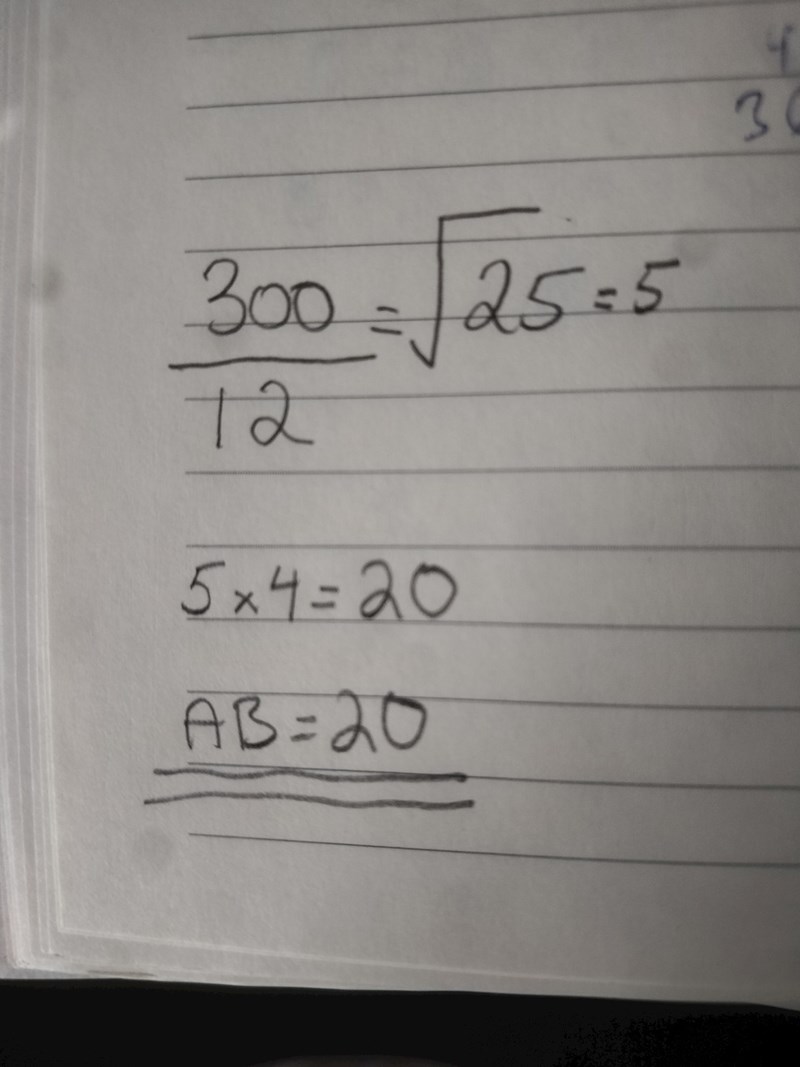 4
300/12 = √25 = 5
5 x 4 = 20
AB = 20